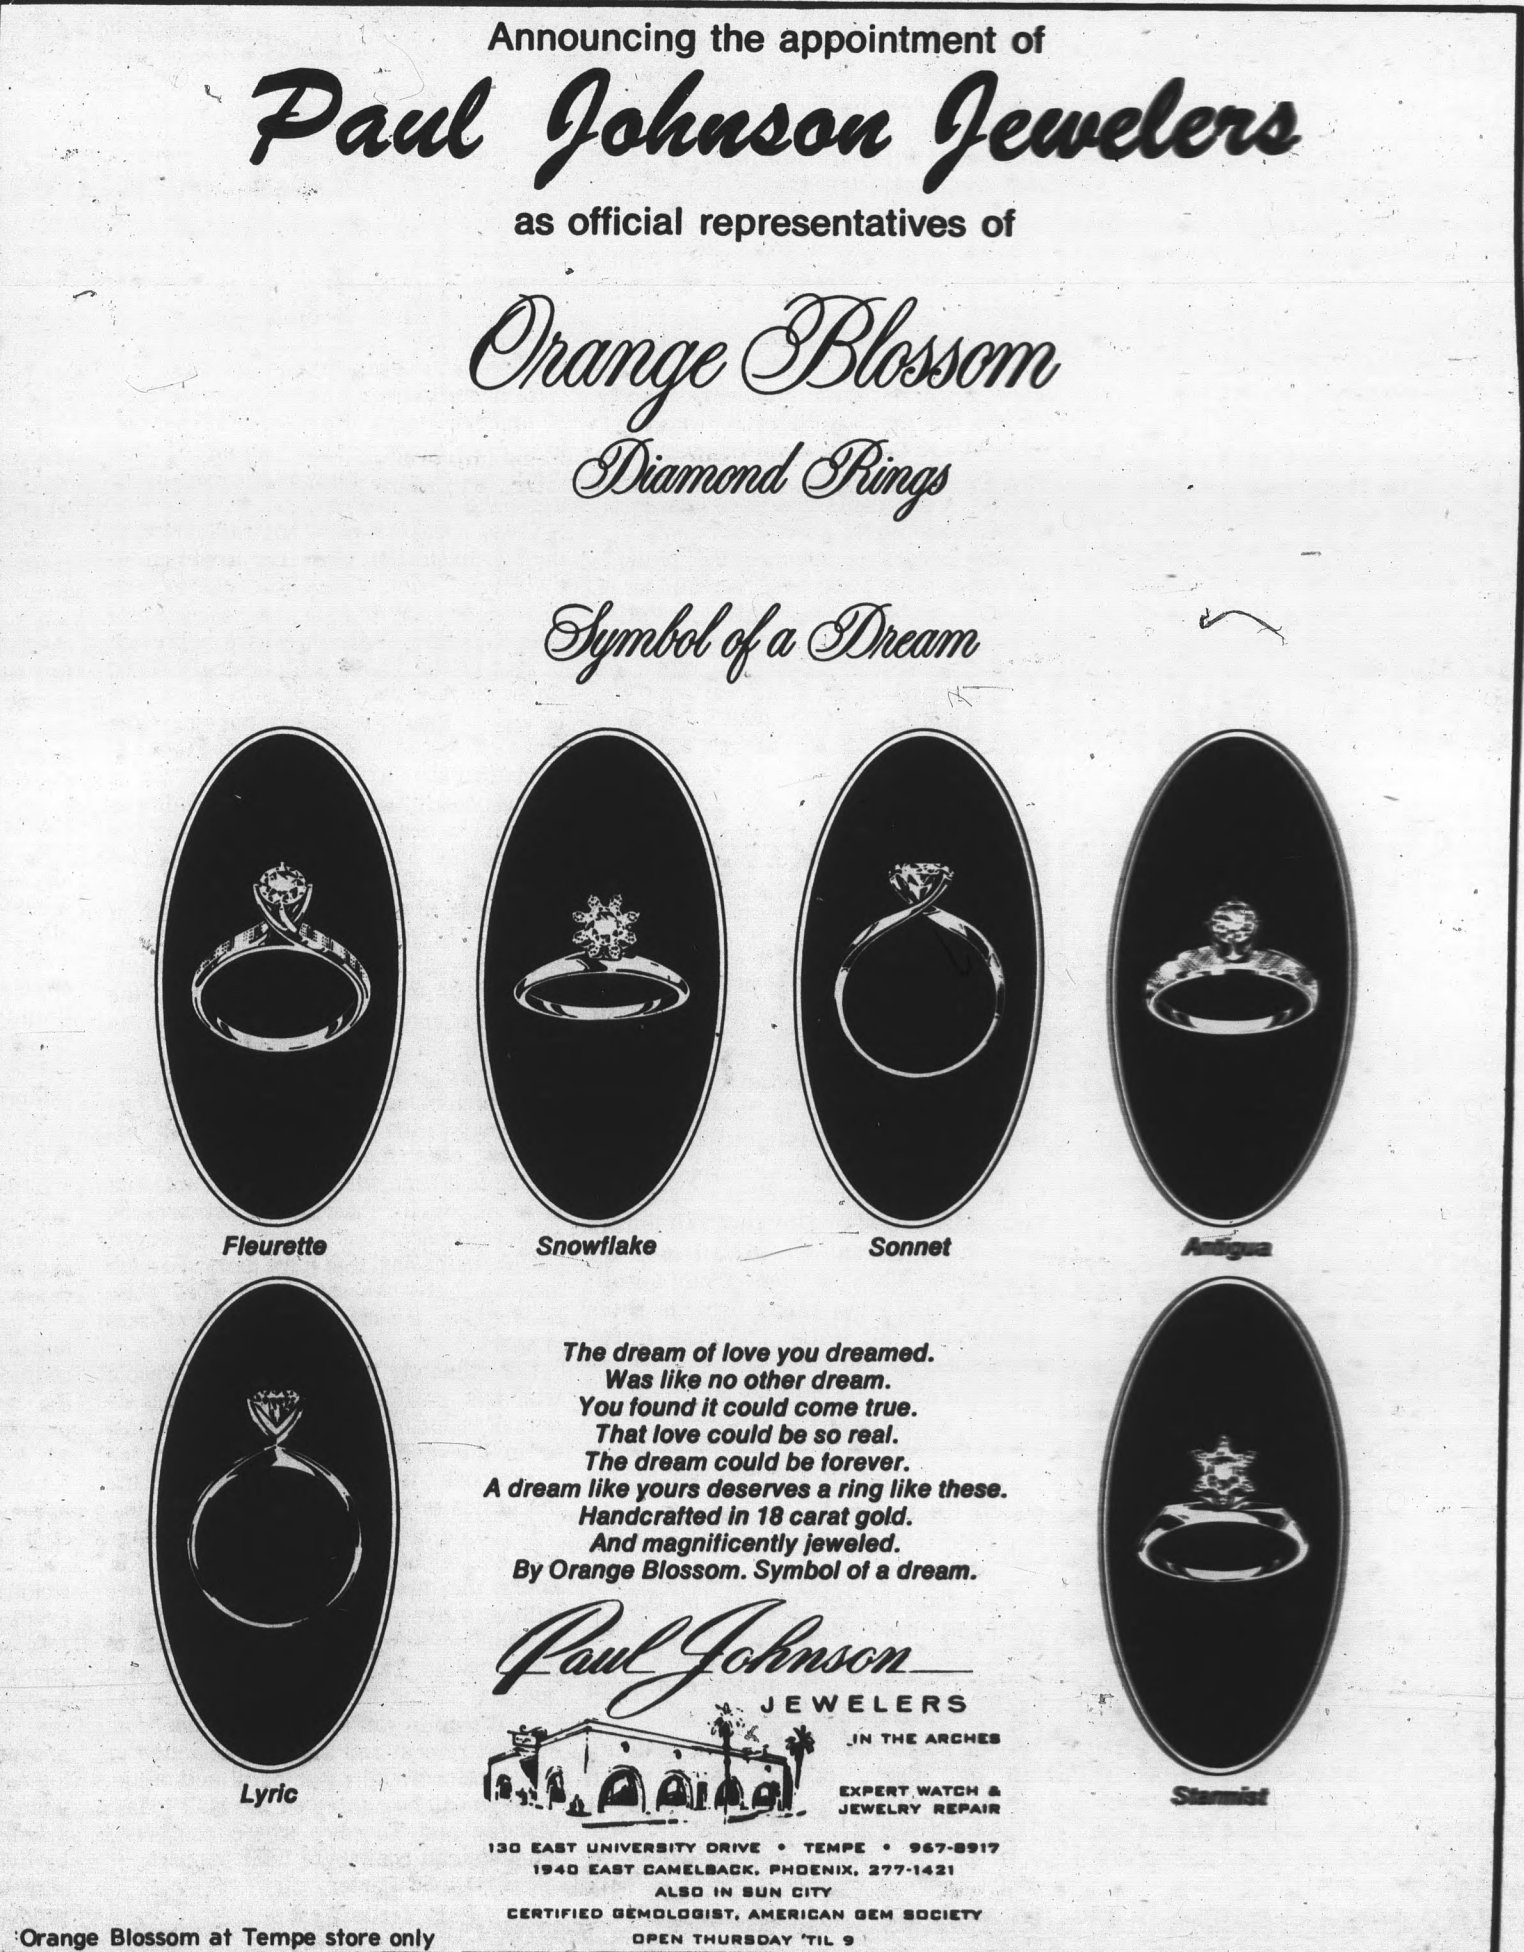 Announcing the appointment of
Paul Johnson Jewelers
as official representatives of
Orange Blossom
Diamond Rings
Symbol of a Dream
Fleurette
Snowflake
Sonnet
Antigua
The dream of love you dreamed.
Was like no other dream.
You found it could come true.
That love could be so real.
The dream could be forever.
A dream like yours deserves a ring like these.
Handcrafted in 18 carat gold.
And magnificently jeweled.
By Orange Blossom. Symbol of a dream.
Lyric
Starmist
Paul Johnson
JEWELERS
IN THE ARCHES
EXPERT WATCH &
JEWELRY REPAIR
130 EAST UNIVERSITY DRIVE • TEMPE • 967-8917
1940 EAST CAMELBACK, PHOENIX, 277-1421
ALSO IN SUN CITY
CERTIFIED GEMOLOGIST, AMERICAN GEM SOCIETY
OPEN THURSDAY 'TIL 9
Orange Blossom at Tempe store only